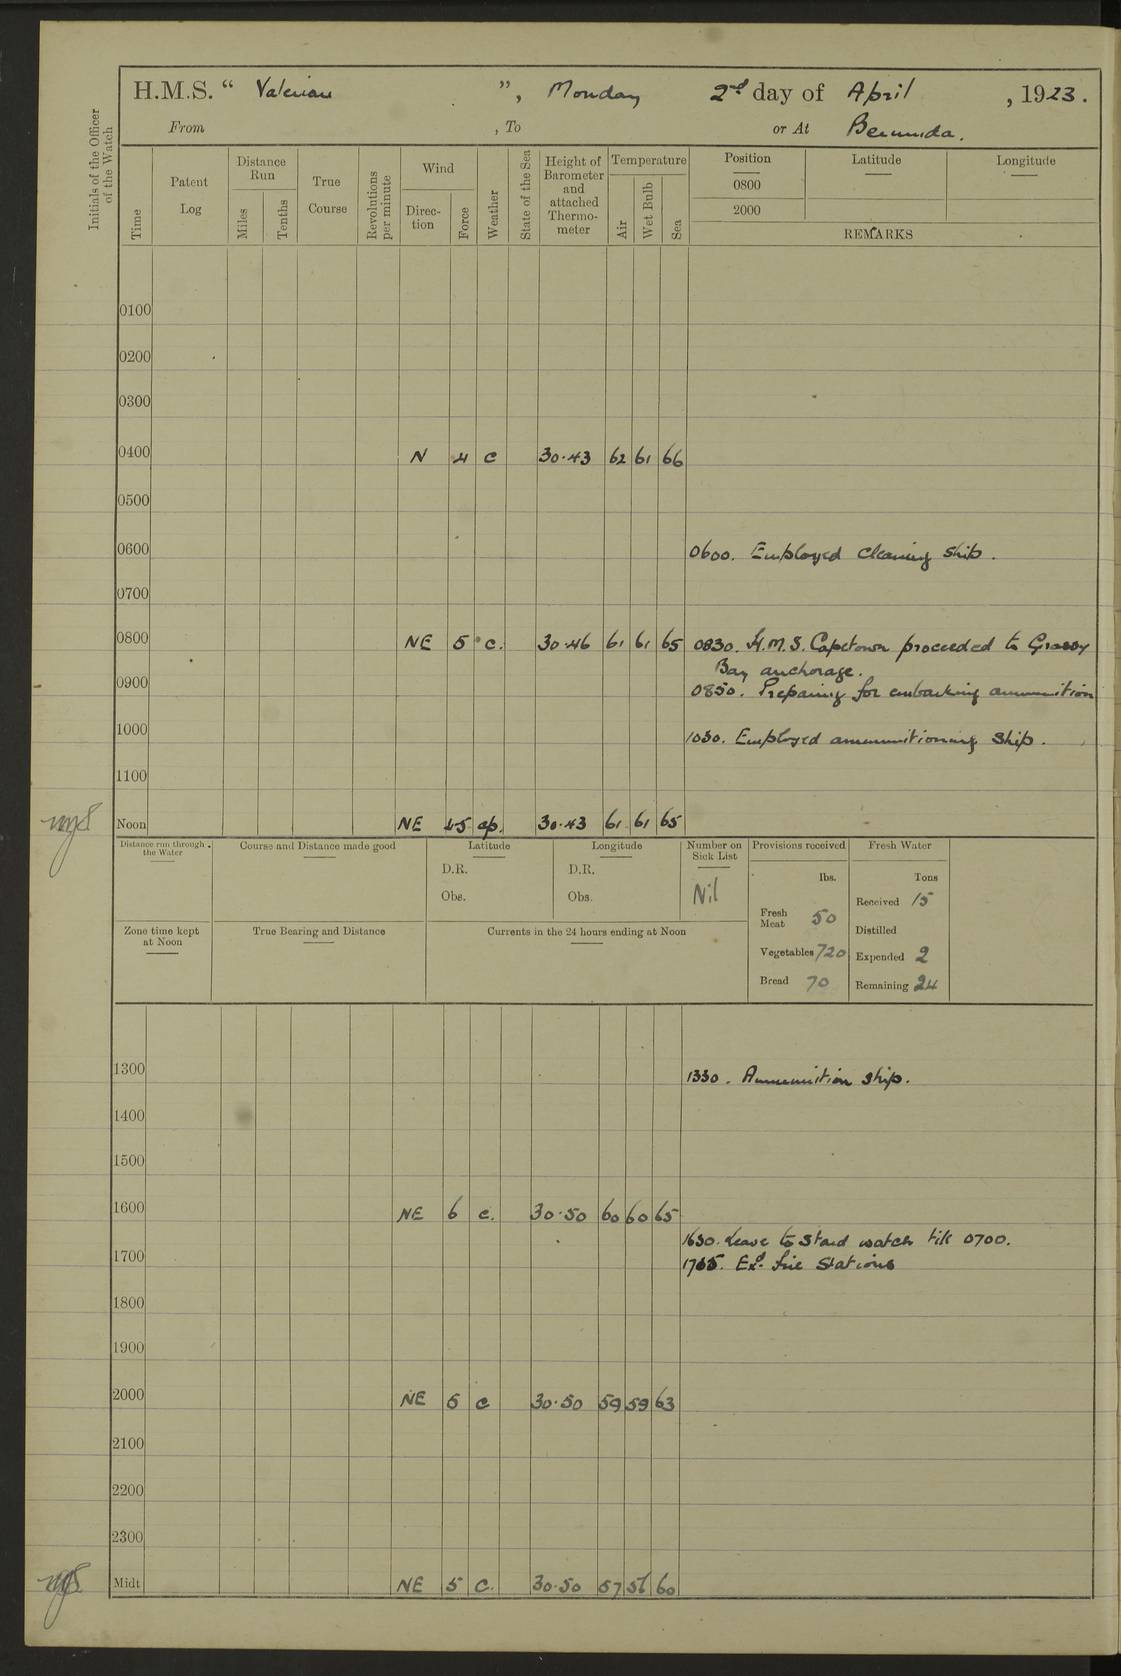 H.M.S. “ Valerian ”, Monday 2nd day of April , 1923.
From , To or At Bermuda.
Initials of the Officer of the Watch
Time
Patent Log
Distance Run
Miles
Tenths
True Course
Revolutions per minute
Wind
Direc-tion
Force
Weather
State of the Sea
Height of Barometer and attached Thermo-meter
Temperature
Air
Wet Bulb
Sea
Position
Latitude
Longitude
0800
2000
REMARKS
0100
0200
0300
0400 N 4 c 30.43 62 61 66
0500
0600 0600. Employed cleaning ship.
0700
0800 NE 5 c. 30.46 61 61 65 0830. H.M.S. Capetown proceeded to Grassy
Bay anchorage.
0900 0850. Preparing for embarking ammunition
1000 1030. Employed ammunitioning ship.
1100
Noon NE 4-5 cp. 30.43 61 61 65
Distance run through the Water
Course and Distance made good
Latitude
D.R.
Obs.
Longitude
D.R.
Obs.
Number on Sick List
Nil
Provisions received
lbs.
Fresh Meat 50
Vegetables 720
Bread 70
Fresh Water
Tons
Received 15
Distilled
Expended 2
Remaining 24
Zone time kept at Noon
True Bearing and Distance
Currents in the 24 hours ending at Noon
1300 1330. Ammunition ship.
1400
1500
1600 NE 6 c. 30.50 60 60 65
1630. Leave to Stard watch till 0700.
1700 Exd. fire Stations
1800
1900
2000 NE 5 c 30.50 59 59 63
2100
2200
2300
Midt NE 5 c. 30.50 57 56 60